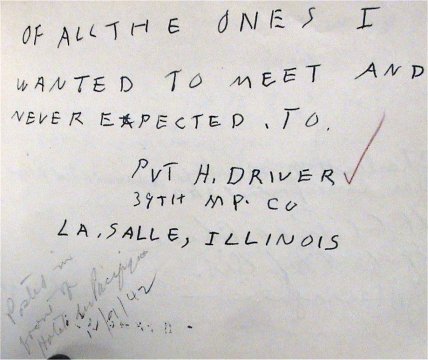 OF ALL THE ONES I
WANTED TO MEET AND
NEVER EXPECTED. TO.
PVT H. DRIVER ✓
39TH MP. CO
LA. SALLE, ILLINOIS
Posted in
front of
Hotel du Pacifique